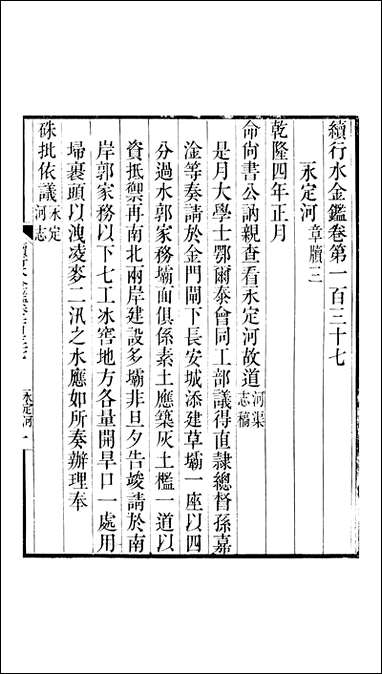 續行水金鑑卷第一百三十七
永定河 章牘三
乾隆四年正月
命尚書公訥親查看永定河故道 河渠志稿
是月大學士鄂爾泰會同工部議得直隸總督孫嘉
淦等奏請於金門閘下長安城添建草壩一座以四
分過水郭家務壩面俱係素土應築灰土檻一道以
資抵禦再南北兩岸建設多壩非旦夕告竣請於南
岸郭家務以下七工冰窖地方各量開旱口一處用
埽裹頭以洩凌麥二汛之水應如所奏辦理奉
硃批依議 永定河志
永定河 一